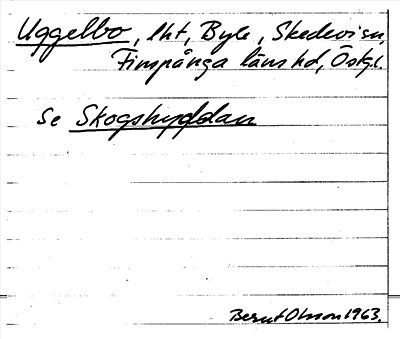 Uggelbo, lht, Byle, Skedevi sn,
Finspånga läns hd, Östgl.
Se Skogshyddan
Bernt Olsson 1963.